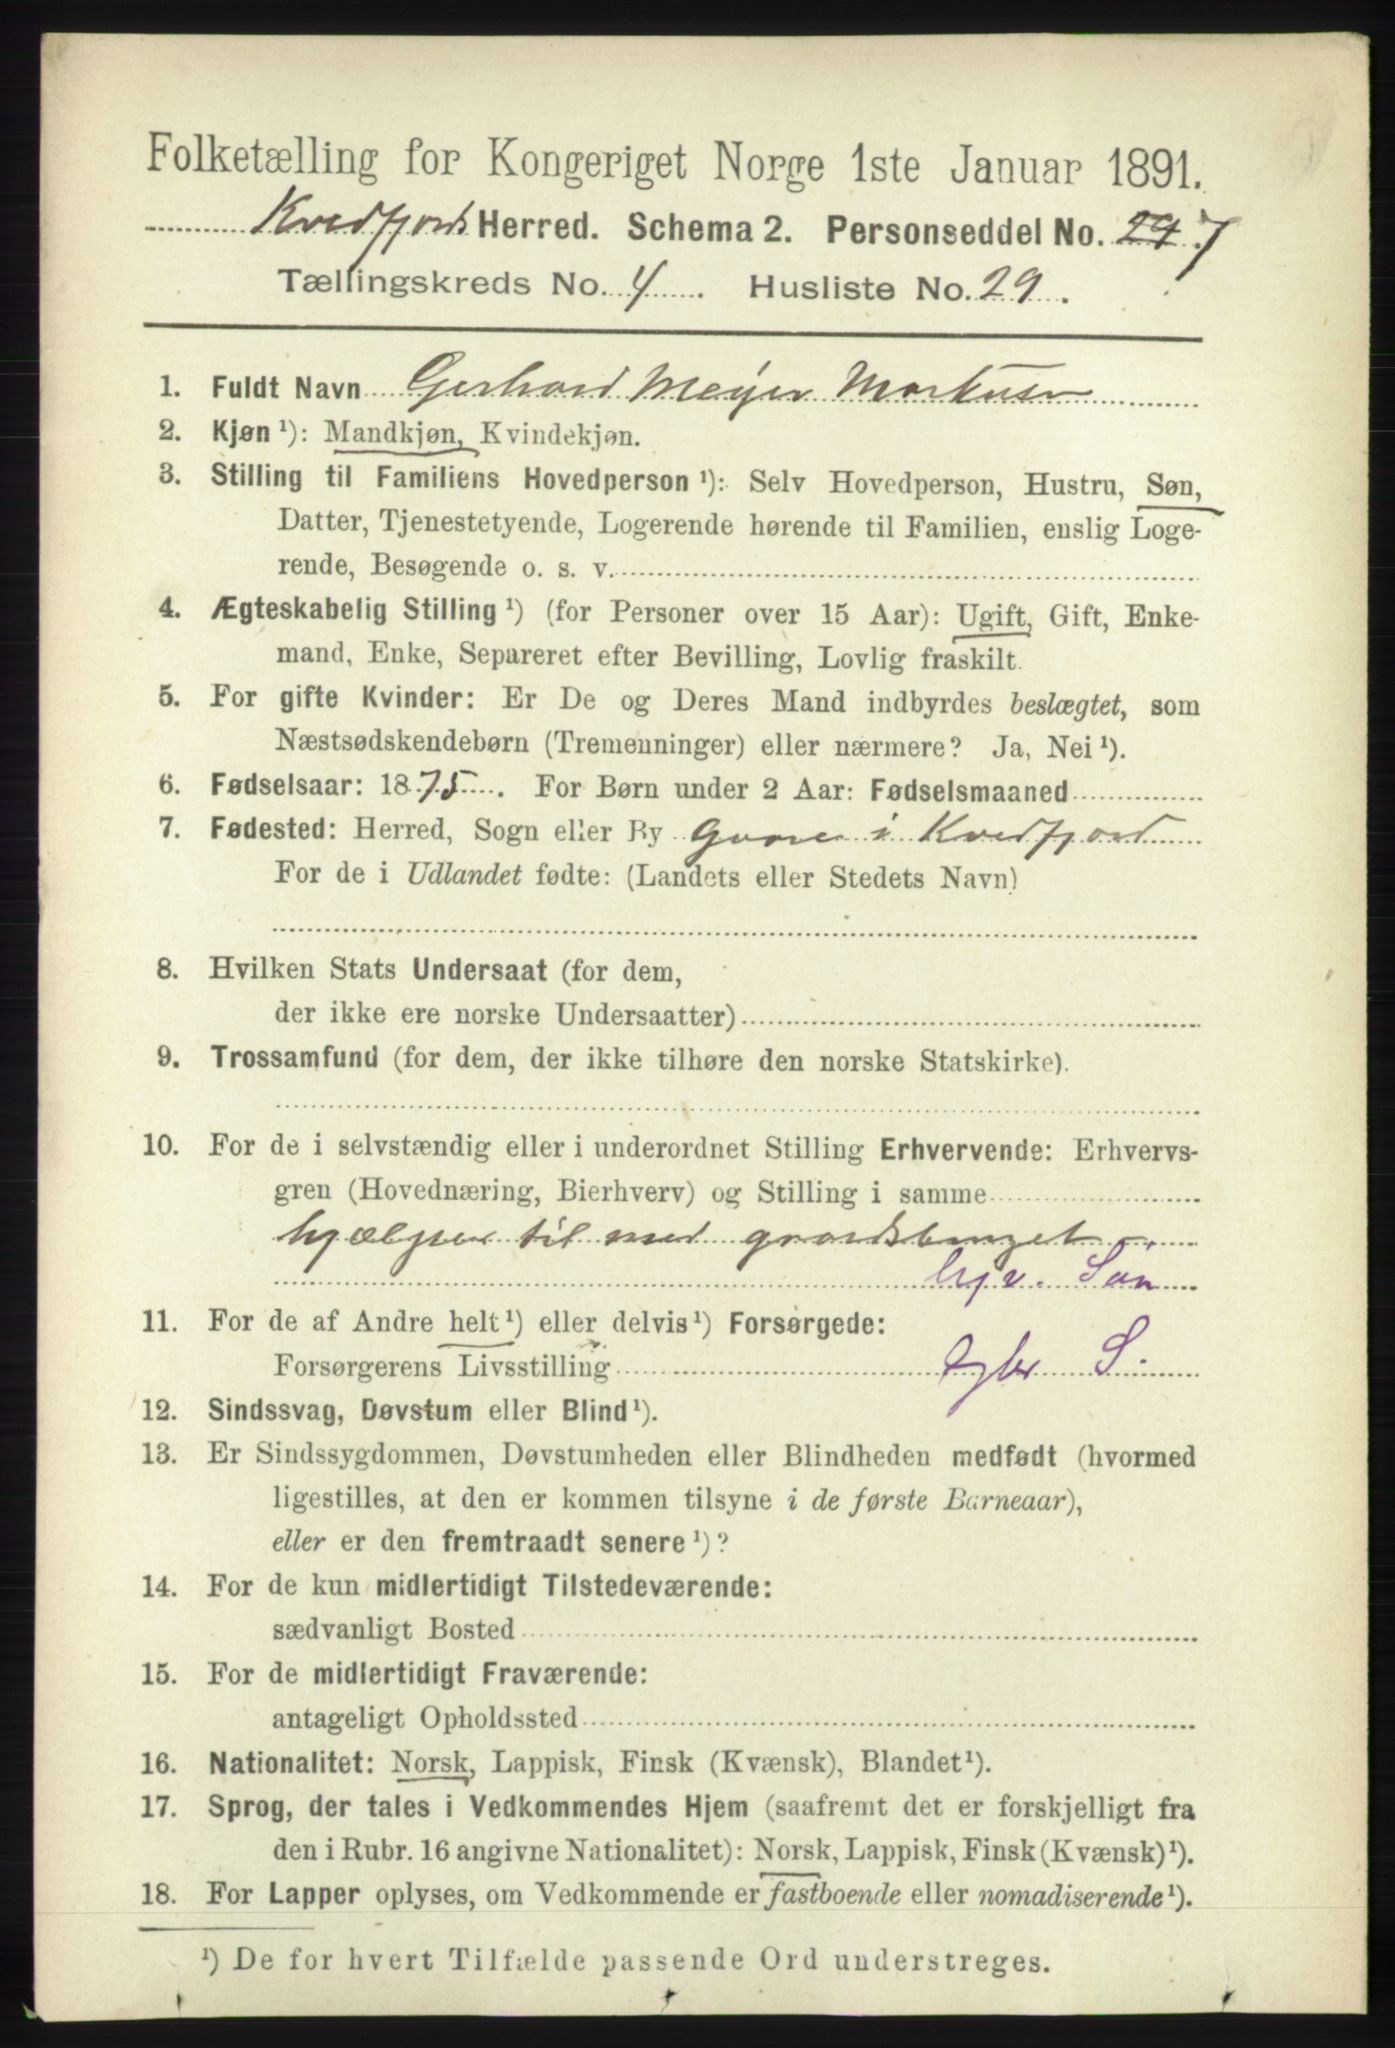 Folketælling for Kongeriget Norge 1ste Januar 1891.
Kvedfjords Herred. Schema 2. Personseddel No. 29 7
Tællingskreds No. 4. Husliste No. 29.
1. Fuldt Navn Gerhard Meyer Markusen
2. Kjøn ¹): Mandkjøn, Kvindekjøn.
3. Stilling til Familiens Hovedperson ¹): Selv Hovedperson, Hustru, Søn,
Datter, Tjenestetyende, Logerende hørende til Familien, enslig Loge-
rende, Besøgende o. s. v.
4. Ægteskabelig Stilling ¹) (for Personer over 15 Aar): Ugift, Gift, Enke-
mand, Enke, Separeret efter Bevilling, Lovlig fraskilt.
5. For gifte Kvinder: Er De og Deres Mand indbyrdes beslægtet, som
Næstsødskendebørn (Tremenninger) eller nærmere? Ja, Nei ¹).
6. Fødselsaar: 1875. For Børn under 2 Aar: Fødselsmaaned
7. Fødested: Herred, Sogn eller By i Kvedfjord
For de i Udlandet fødte: (Landets eller Stedets Navn)
8. Hvilken Stats Undersaat (for dem,
der ikke ere norske Undersaatter)
9. Trossamfund (for dem, der ikke tilhøre den norske Statskirke).
10. For de i selvstændig eller i underordnet Stilling Erhvervende: Erhvervs-
gren (Hovednæring, Bierhverv) og Stilling i samme
hjælper til med gaardsbruget
Søn
11. For de af Andre helt ¹) eller delvis ¹) Forsørgede:
Forsørgerens Livsstilling S.
12. Sindssvag, Døvstum eller Blind ¹).
13. Er Sindssygdommen, Døvstumheden eller Blindheden medfødt (hvormed
ligestilles, at den er kommen tilsyne i de første Barneaar),
eller er den fremtraadt senere ¹)?
14. For de kun midlertidigt Tilstedeværende:
sædvanligt Bosted
15. For de midlertidigt Fraværende:
antageligt Opholdssted
16. Nationalitet: Norsk, Lappisk, Finsk (Kvænsk), Blandet ¹).
17. Sprog, der tales i Vedkommendes Hjem (saafremt det er forskjelligt fra
den i Rubr. 16 angivne Nationalitet): Norsk, Lappisk, Finsk (Kvænsk) ¹).
18. For Lapper oplyses, om Vedkommende er fastboende eller nomadiserende ¹).
¹) De for hvert Tilfælde passende Ord understreges.